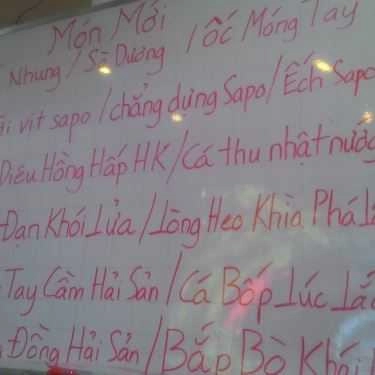 Món Mới
Nhung / Sò Dương / Ốc Móng Tay
vịt sapo / chẳng dựng Sapo / Ếch Sapo
Diêu Hồng Hấp HK / Cá thu nhật nướ
Đạn Khói Lửa / Lòng Heo Khìa Phá
Tay Cầm Hải Sản / Cá Bốp Lúc Lắ
Đồng Hải Sản / Bắp Bò Khói